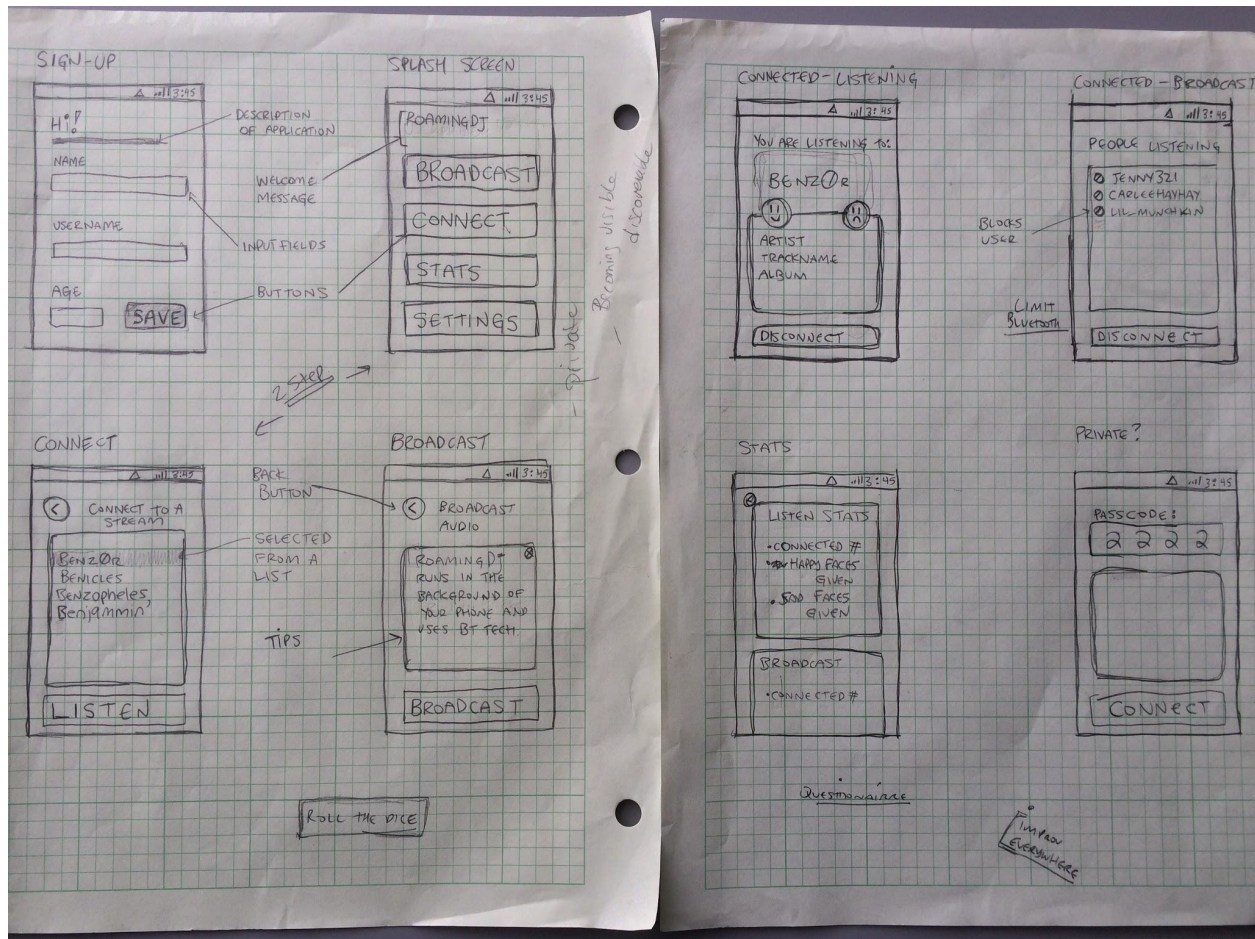 SIGN-UP
3:45
Hi!
NAME
USERNAME
AGE
SAVE
DESCRIPTION
OF APPLICATION
WELCOME
MESSAGE
INPUT FIELDS
BUTTONS
SPLASH SCREEN
3:45
ROAMINGDJ
BROADCAST
CONNECT
STATS
SETTINGS
- private
- Becoming visible
discoverable
2 step
CONNECT
3:45
CONNECT TO A
STREAM
BENZØR
BENICLES
Benzopheles,
Benjammin'
LISTEN
BACK
BUTTON
SELECTED
FROM A
LIST
TIPS
BROADCAST
3:45
BROADCAST
AUDIO
ROAMINGDJ
RUNS IN THE
BACKGROUND OF
YOUR PHONE AND
USES BT TECH.
BROADCAST
ROLL THE DICE
CONNECTED - LISTENING
3:45
YOU ARE LISTENING TO:
BENZØR
ARTIST
TRACKNAME
ALBUM
DISCONNECT
CONNECTED - BROADCAST
3:45
PEOPLE LISTENING
JENNY321
CARLEEHAYHAY
LIL-MUNCHKIN
DISCONNECT
BLOCKS
USER
LIMIT
BLUETOOTH
STATS
3:45
LISTEN STATS
• CONNECTED #
• HAPPY FACES
GIVEN
• SAD FACES
GIVEN
BROADCAST
• CONNECTED #
PRIVATE?
3:45
PASSCODE:
2 2 2 2
CONNECT
QUESTIONAIRRE
IMPROV
EVERYWHERE